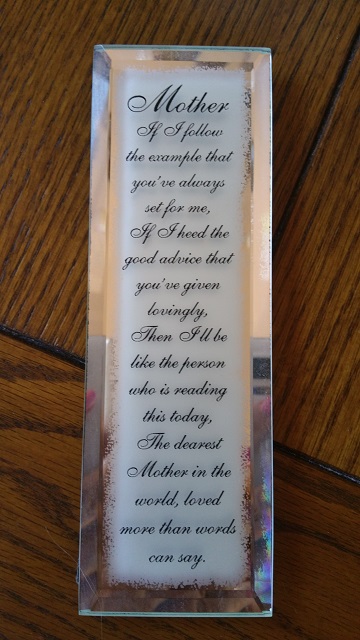 Mother
If I follow
the example that
you've always
set for me,
If I heed the
good advice that
you've given
lovingly,
Then I'll be
like the person
who is reading
this today,
The dearest
Mother in the
world, loved
more than words
can say.